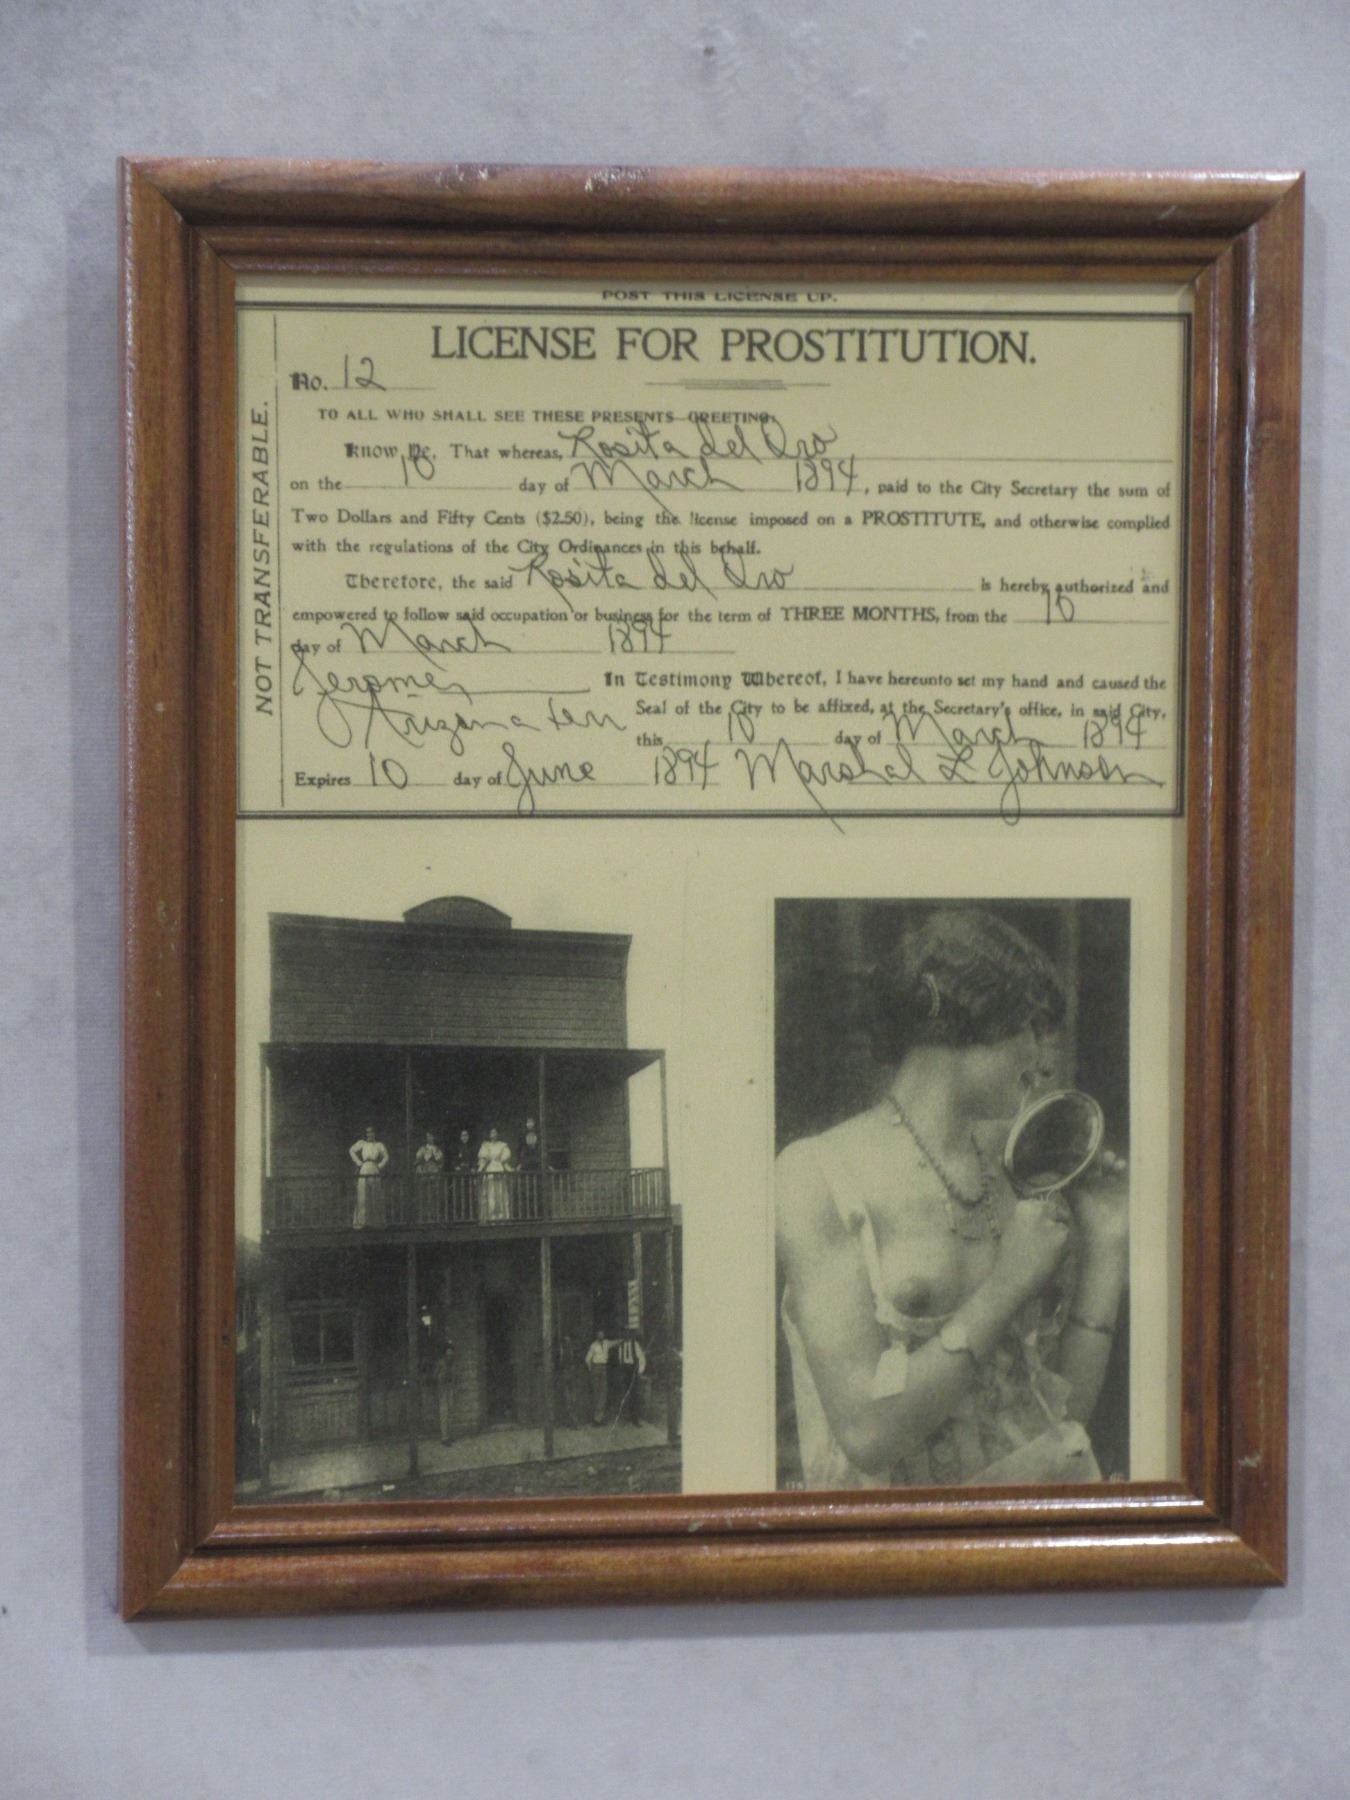 POST THIS LICENSE UP.
LICENSE FOR PROSTITUTION.
No. 12
NOT TRANSFERABLE.
TO ALL WHO SHALL SEE THESE PRESENTS GREETING:
Know Ye, That whereas, Rosita del Oro
on the 10 day of March 1894, paid to the City Secretary the sum of
Two Dollars and Fifty Cents ($2.50), being the license imposed on a PROSTITUTE, and otherwise complied
with the regulations of the City Ordinances in this behalf.
Therefore, the said Rosita del Oro is hereby authorized and
empowered to follow said occupation or business for the term of THREE MONTHS, from the 10
day of March 1894
Jerome, Arizona Terr
In Testimony Whereof, I have hereunto set my hand and caused the
Seal of the City to be affixed, at the Secretary's office, in said City,
this 10 day of March 1894
Expires 10 day of June 1894 Marshal L Johnson